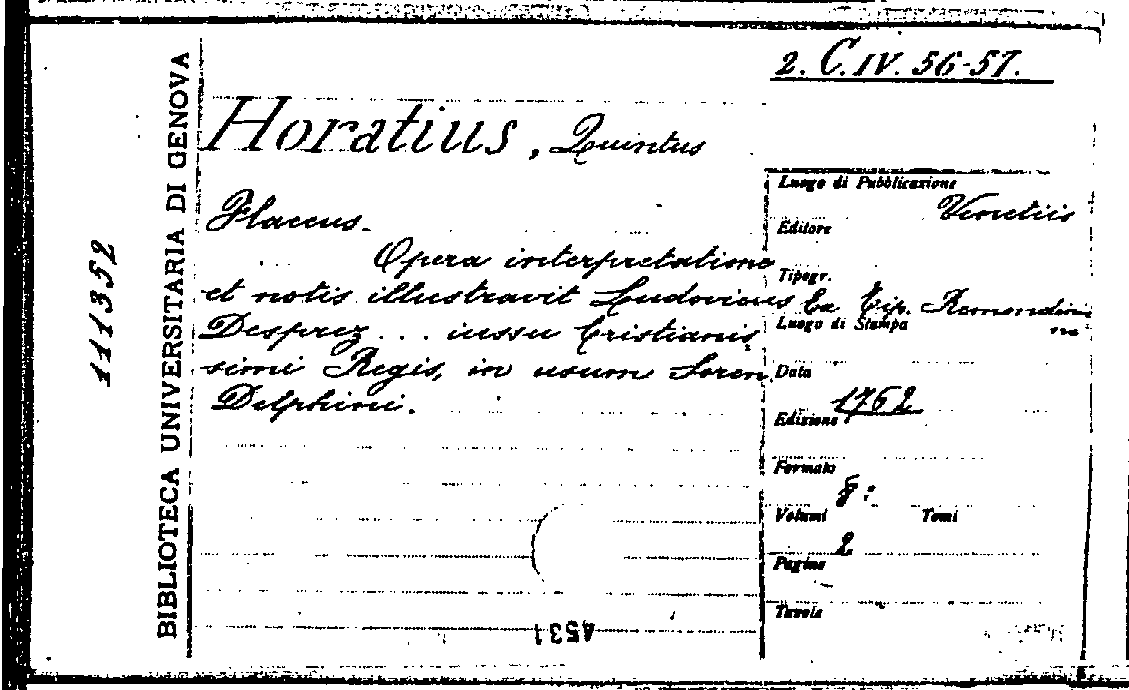 2. C. IV. 56-57.
BIBLIOTECA UNIVERSITARIA DI GENOVA
111352
Horatius, Quintus
Flaccus.
Opera interpretatione
et notis illustravit Ludovicus
Desprez ... iussu Cristianis
simi Regis, in usum Seren.
Delphini.
4531
Luogo di Pubblicazione
Venetiis
Editore
Tipogr.
Ex Tip. Remondini
na
Luogo di Stampa
Data
1762
Edizione
Formato
8:
Volumi Tomi
2
Pagine
Tavole